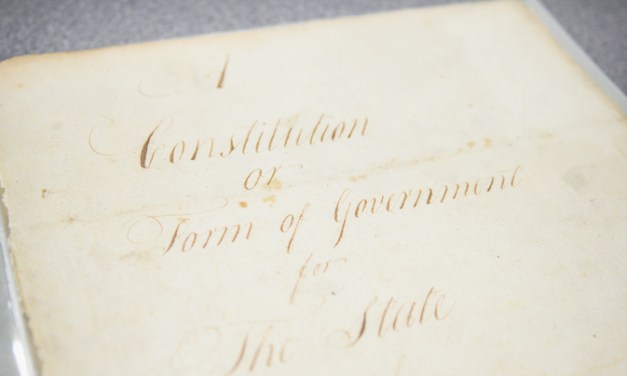 A
Constitution
or
Form of Government
for
The State